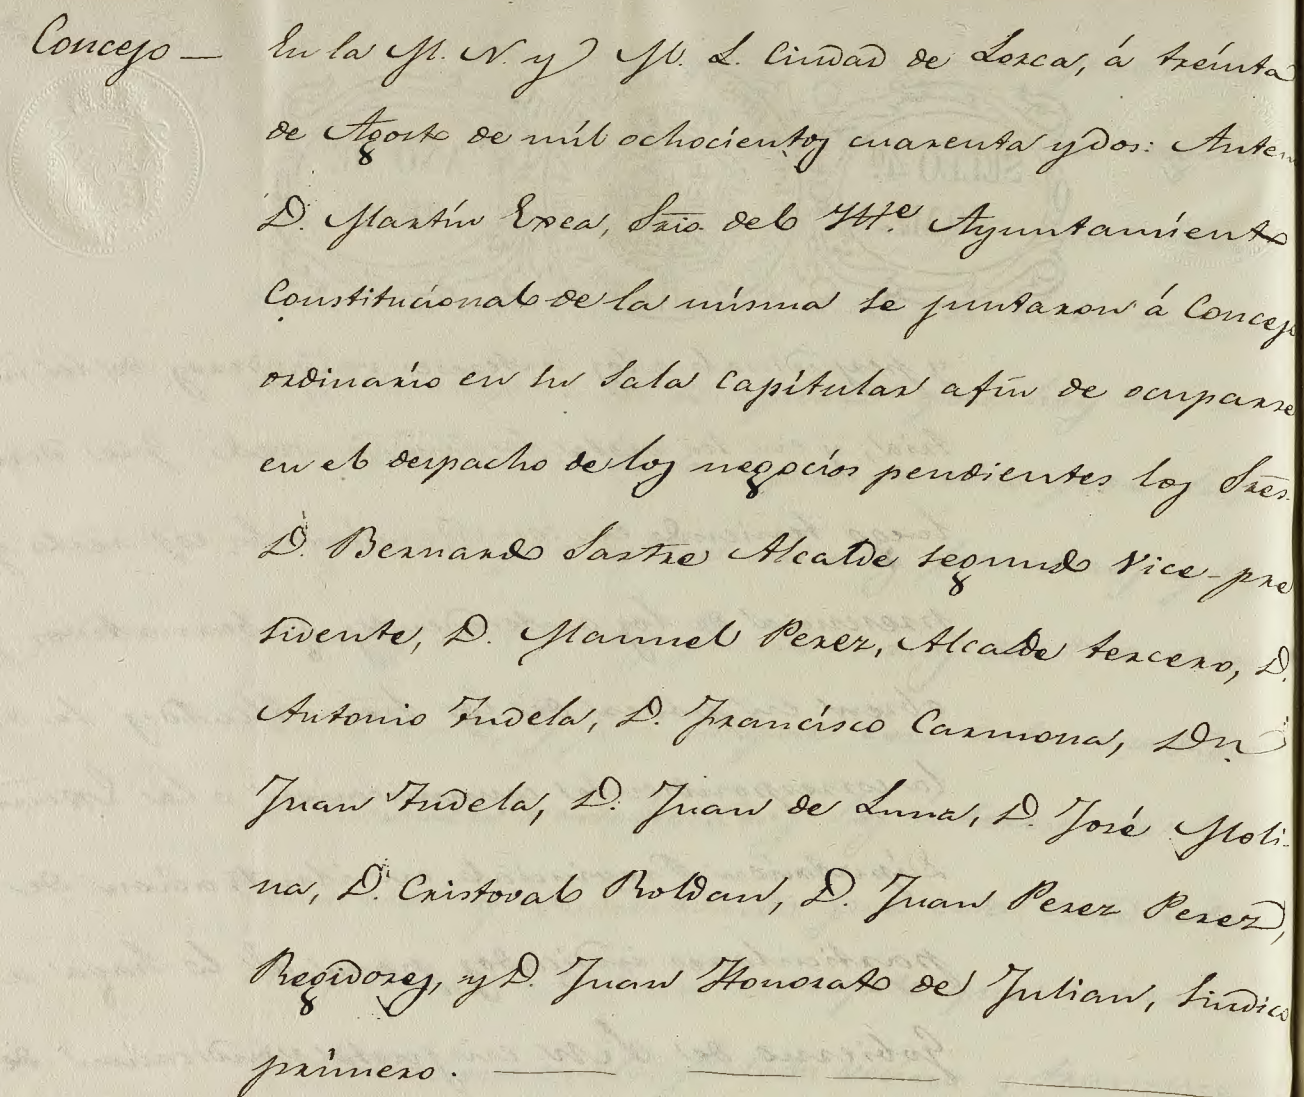 Concejo — En la M. N. y M. L. Ciudad de Lorca, á treinta
de Agosto de mil ochocientos cuarenta y dos: Antemi
D. Martin Erea, Srio. del Itt.e Ayuntamiento
Constitucional de la misma se juntaron á Concejo
ordinario en su Sala Capitular afin de ocuparse
en el despacho de los negocios pendientes los Sres.
D. Bernardo Sastre Alcalde segundo Vice-pre
sidente, D. Manuel Perez, Alcalde tercero, D.
Antonio Tudela, D. Francisco Carmona, Dn.
Juan Tudela, D. Juan de Luna, D. José Moli-
na, D. Cristoval Roldan, D. Juan Perez Perez,
Regidores, y D. Juan Honorato de Julian, Sindico
primero.